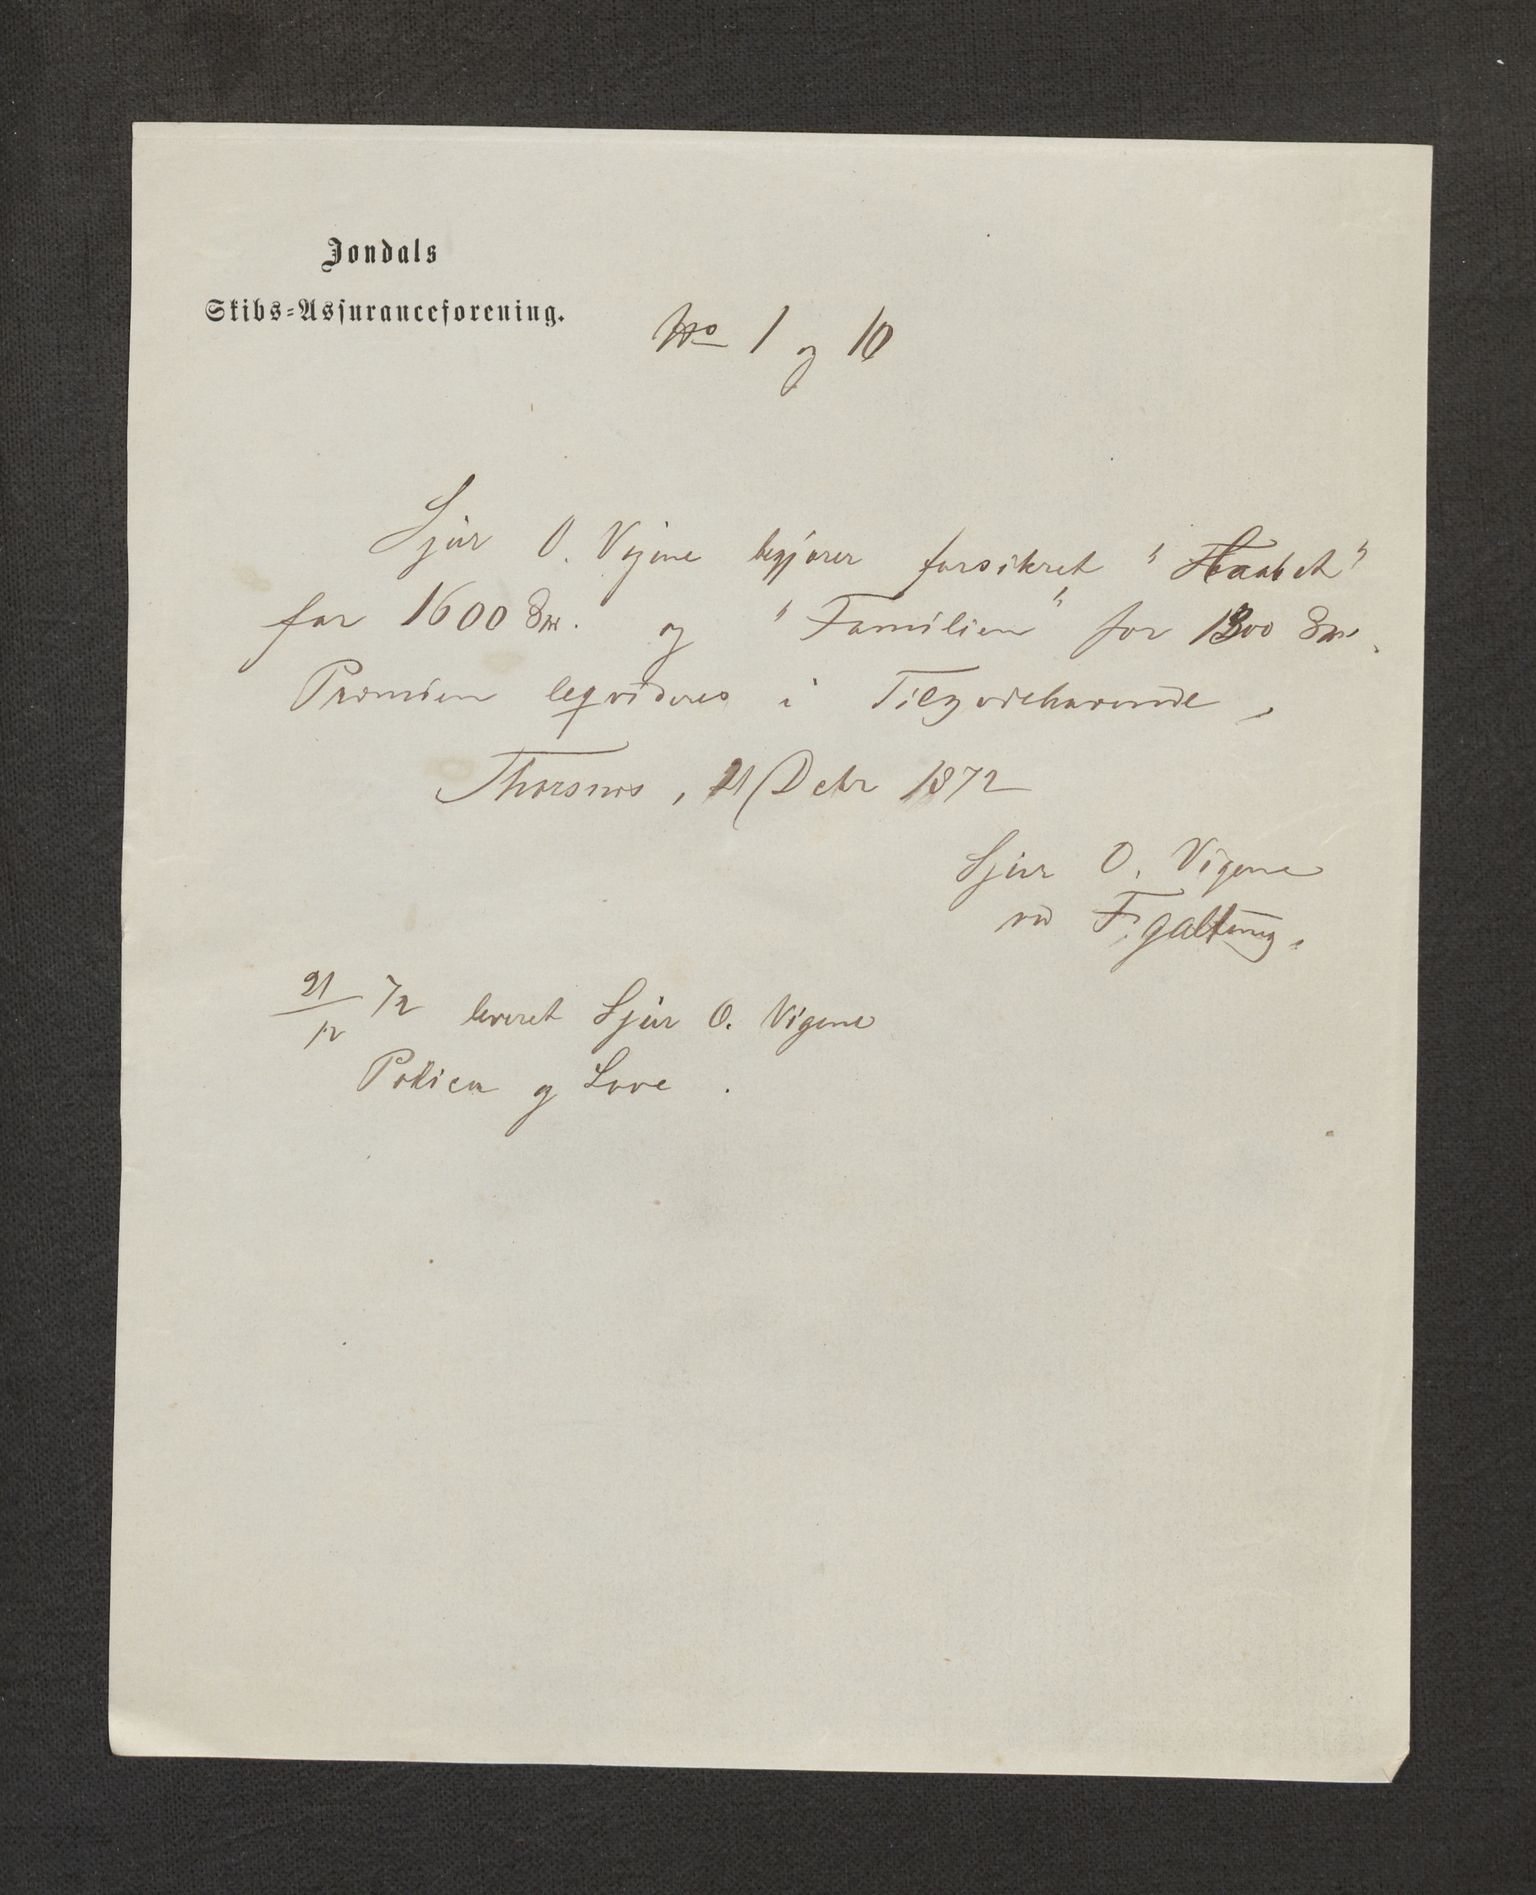 Jondals
Skibs-Assuranceforening.
No 1 og 10
Sjur O. Vigene begjærer forsikret "Haabet"
for 1600 Spd. og "Familien" for 1300 Spd.
Præmien leqvideres i Tilgodehavende,
Thorsnes, 21 Dcbr 1872
Sjur O. Vigene
ved F. Galtung.
21/12 72 leveret Sjur O. Vigene
Policer og Love.